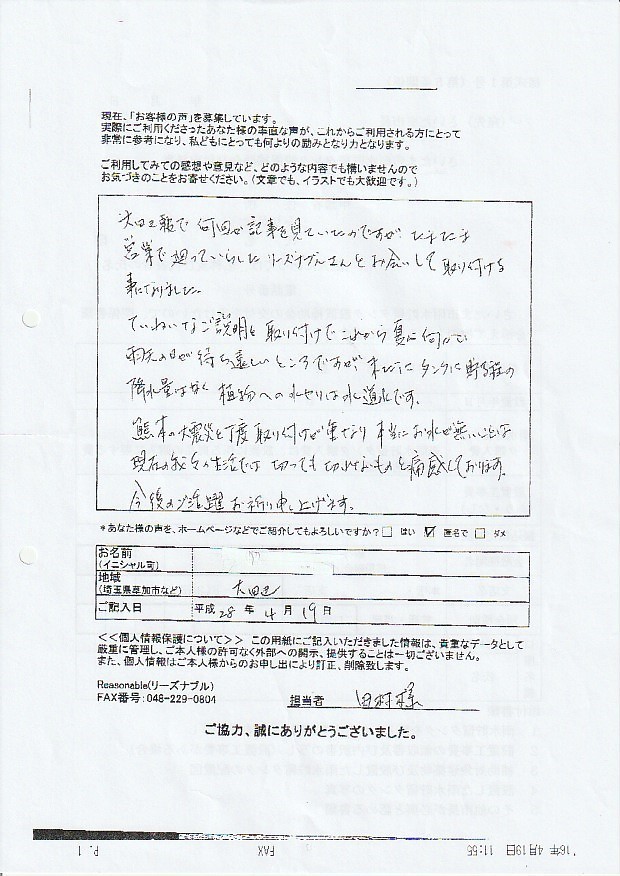 現在、「お客様の声」を募集しています。
実際にご利用くださったあなた様の率直な声が、これからご利用される方にとって
非常に参考になり、私どもにとっても何よりの励みとなり力となります。
ご利用してみての感想や意見など、どのような内容でも構いませんので
お気づきのことをお寄せください。（文章でも、イラストでも大歓迎です。）
大田区報で何回か記事を見ていたのですが たまたま
営業で廻っていらしたリーズナブルさんとお会いして取り付ける
事になりました。
ていねいなご説明と取り付けでこれから夏に向けて
雨の日が待ち遠しいところですが、まだタンクに貯る程の
降水量はなく植物への水やりは水道水です。
熊本の大震災と丁度取り付けが重なり本当にお水が無いことは
現在の我々の生活では切っても切れないものと痛感しております。
今後のご活躍お祈り申し上げます。
*あなた様の声を、ホームページなどでご紹介してもよろしいですか？□ はい ☑ 匿名で □ ダメ
お名前
(イニシャル可)
地域
(埼玉県草加市など) 大田区
ご記入日 平成 28 年 4 月 19 日
<<個人情報保護について>> この用紙にご記入いただきました情報は、貴重なデータとして
厳重に管理し、ご本人様の許可なく外部への開示、提供することは一切ございません。
また、個人情報はご本人様からのお申し出により訂正、削除致します。
Reasonable(リーズナブル)
FAX番号：048-229-0804 担当者 田村様
ご協力、誠にありがとうございました。
'16年 4月19日 11:55 FAX P. 1